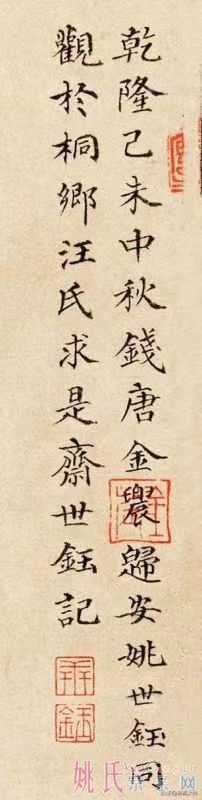 乾隆己未中秋錢唐金農歸安姚世鈺同
觀於桐鄉汪氏求是齋世鈺記
姚氏